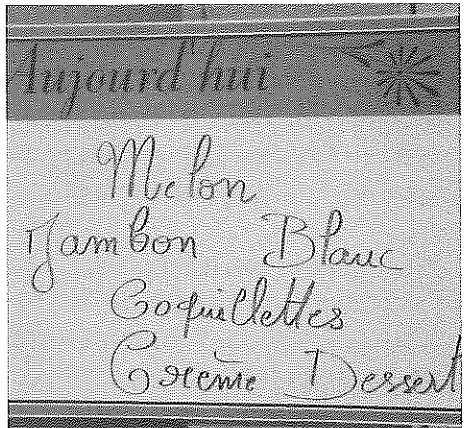 Aujourd'hui
Melon
Jambon Blanc
Coquillettes
Crème Dessert